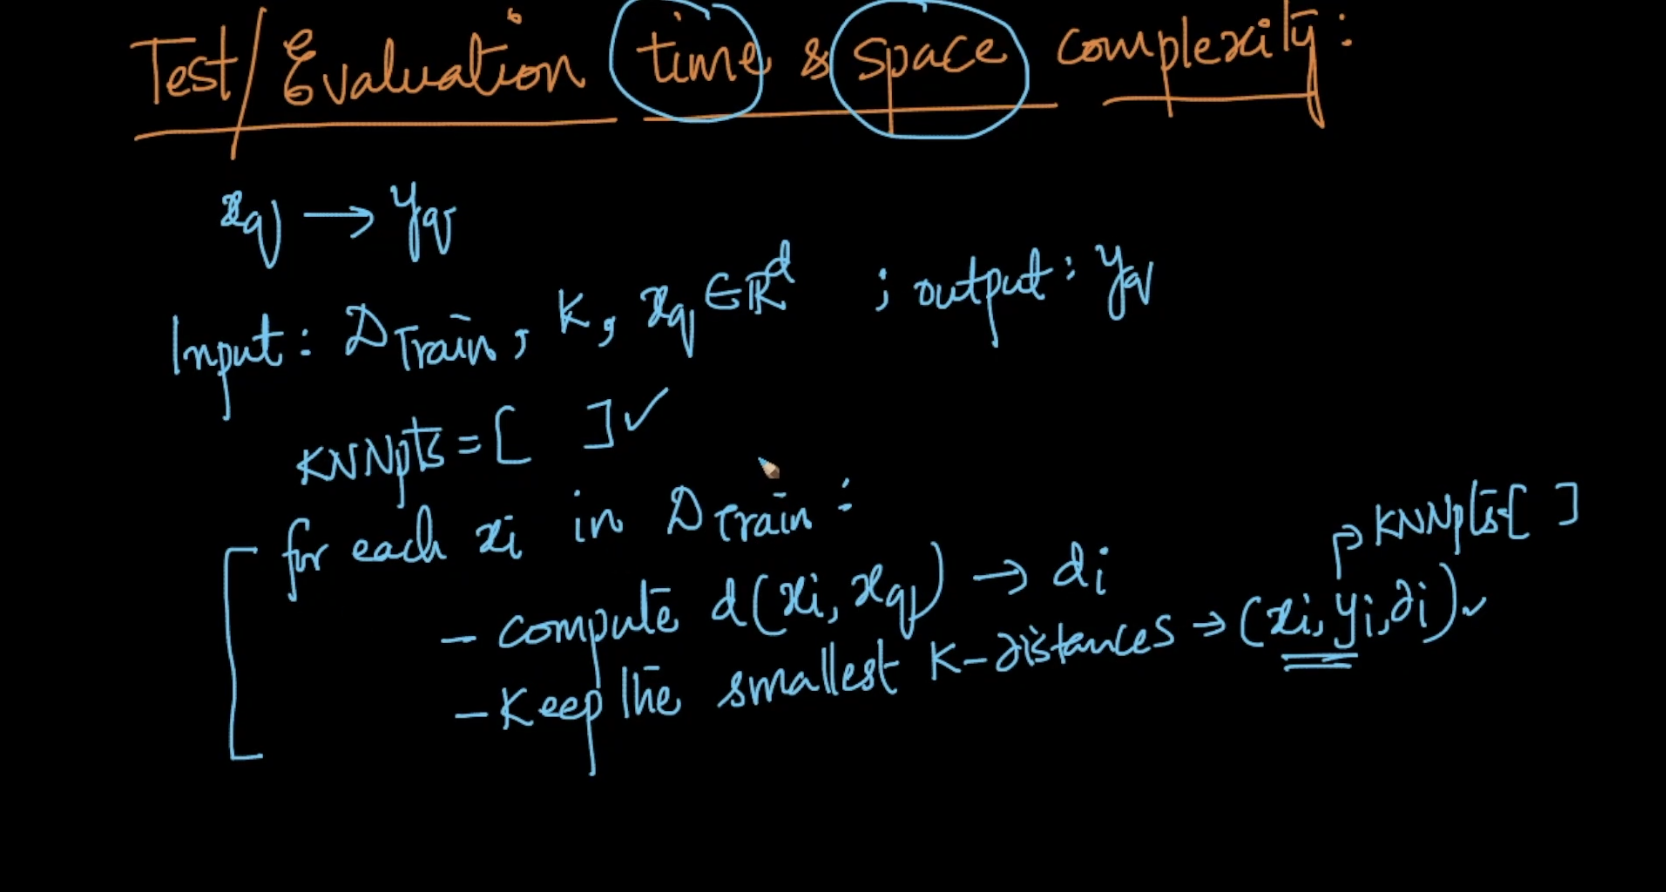 Test/Evaluation time & space complexity:
xq → yq
Input: D Train, K, xq ∈ ℝ^d ; output: yq
KNNpts = [ ] ✓
for each xi in D Train:
- compute d(xi, xq) → di
→ KNNpts [ ]
- Keep the smallest K-distances → (xi, yi, di) ✓